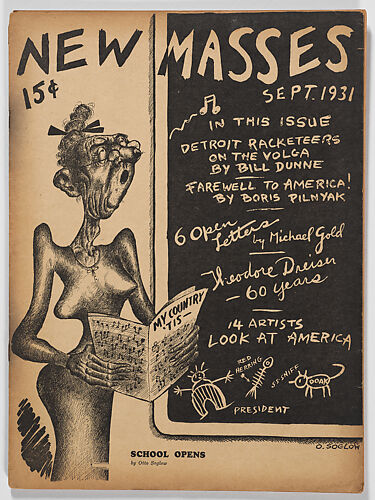 NEW MASSES
15¢
SEPT. 1931
IN THIS ISSUE
DETROIT RACKETEERS
ON THE VOLGA
BY BILL DUNNE
FAREWELL TO AMERICA!
BY BORIS PILNYAK
6 Open
Letters
by Michael Gold
Theodore Dreiser
— 60 years
14 ARTISTS
LOOK AT AMERICA
MY COUNTRY
'TIS —
RED
HERRING
PRESIDENT
O. SOGLOW
SCHOOL OPENS
by Otto Soglow